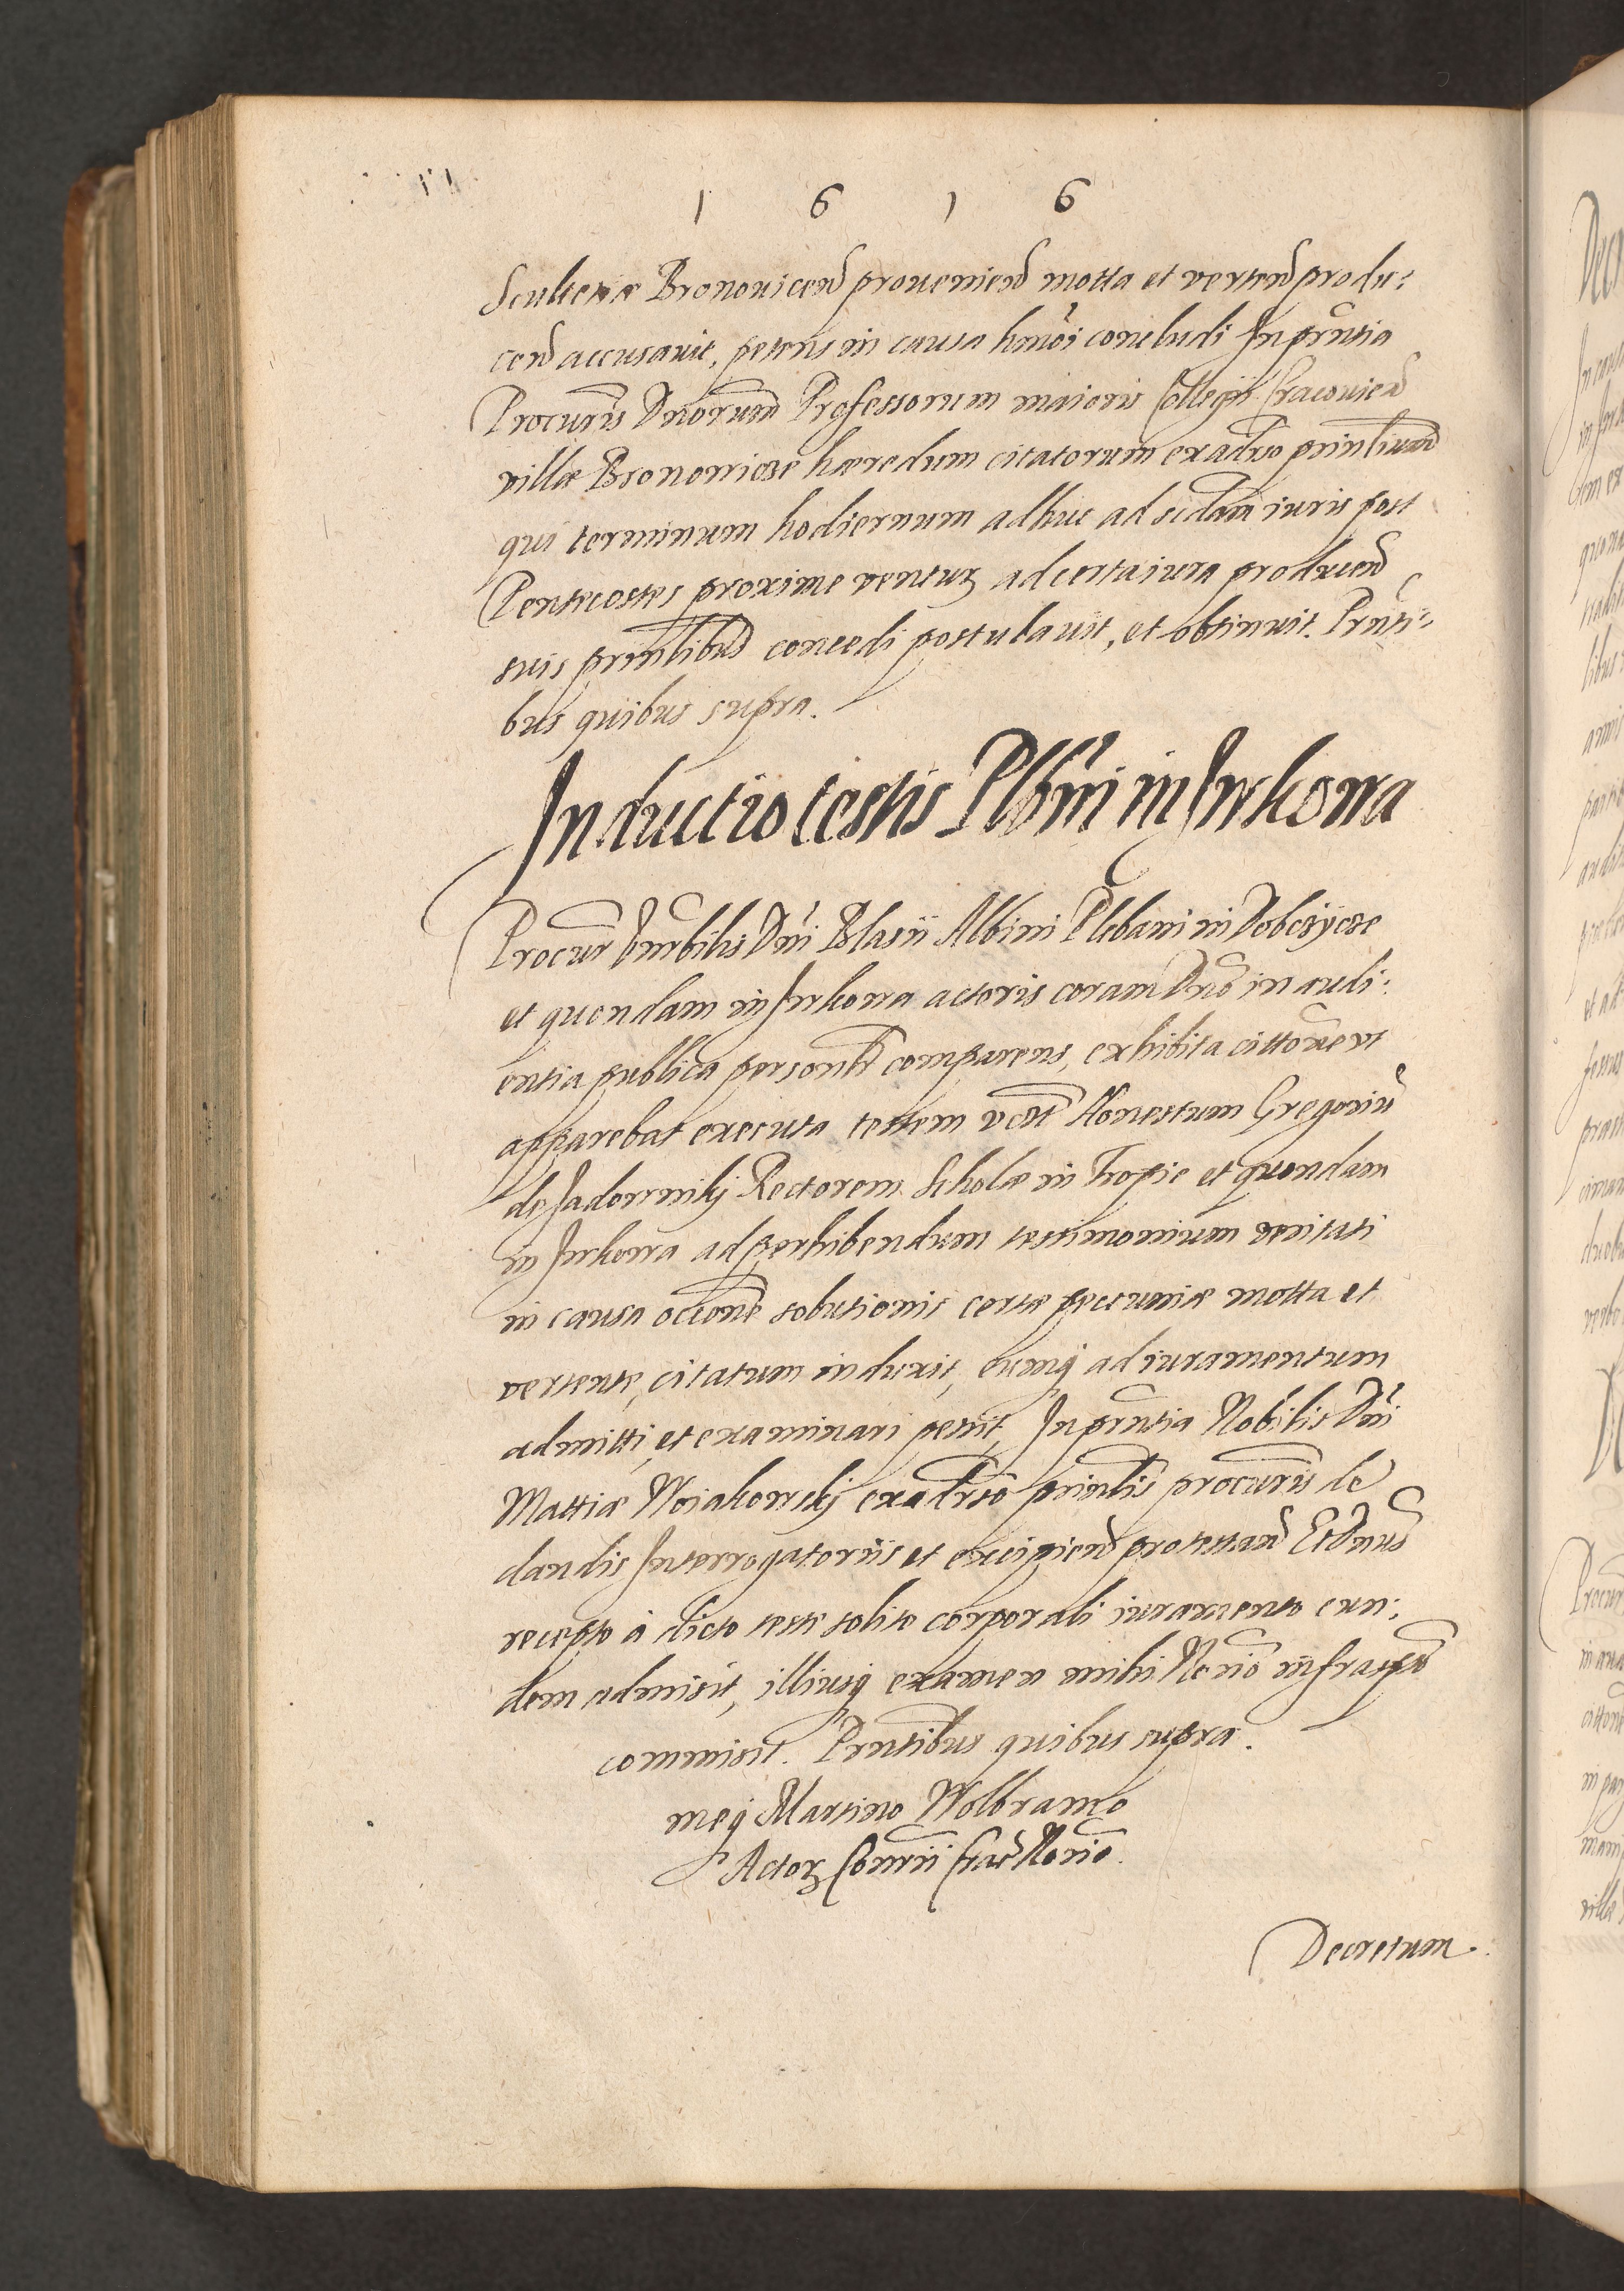 1 6 1 6
Scultetiæ Bronouicen proueniend motta et verten produ:
cen accusauit, petens in causa hmoi concludi Jn prntia
Procuris Dnorum Professorum maioris Collegij Cracouien
villæ Bronowicze hæredum citatorum exadrso prinlium
qui terminum hodiernum adhuc ad scdam iuris post
Pentecostes proxime ventur ad certa iura producend
suis prinlibus concedi postulauit, et obtinuit. Prnti:
bus quibus supra.
Inductio testis Plbni in Jurkowa
Procur Hnrbilis Dni Blasii Albini Plebani in Dobczycze
et quondam in Jurkowa actoris coram Dno in audi:
entia publica personlr comparens, exhibita cittone vt
apparebat executa testem vdlt Honestum Gregoriu
de Jadowniki Rectorem Scholæ in Tropie et quondam
in Jurkowa ad perhibendum testimonium veritati
in causa occone solutionis certæ pecuniæ motta et
vertente, citatum induxit, eumq ad iuramentum
admitti, et examinari petiit, Jn prntia Nobilis Dni
Mattiæ Woiakowskj exadrso prinlis procuris de
dandis Interrogatoriis et excipiend protestand Et Dnus
recepto à dicto teste solito corporali iuramento eun:
dem admisit, illiusq examen mihi Norio infrascpto
commisit. Prntibus quibus supra.
meq Martino Wolbramo
Actor Consrii Crac Norio.
Decretum.